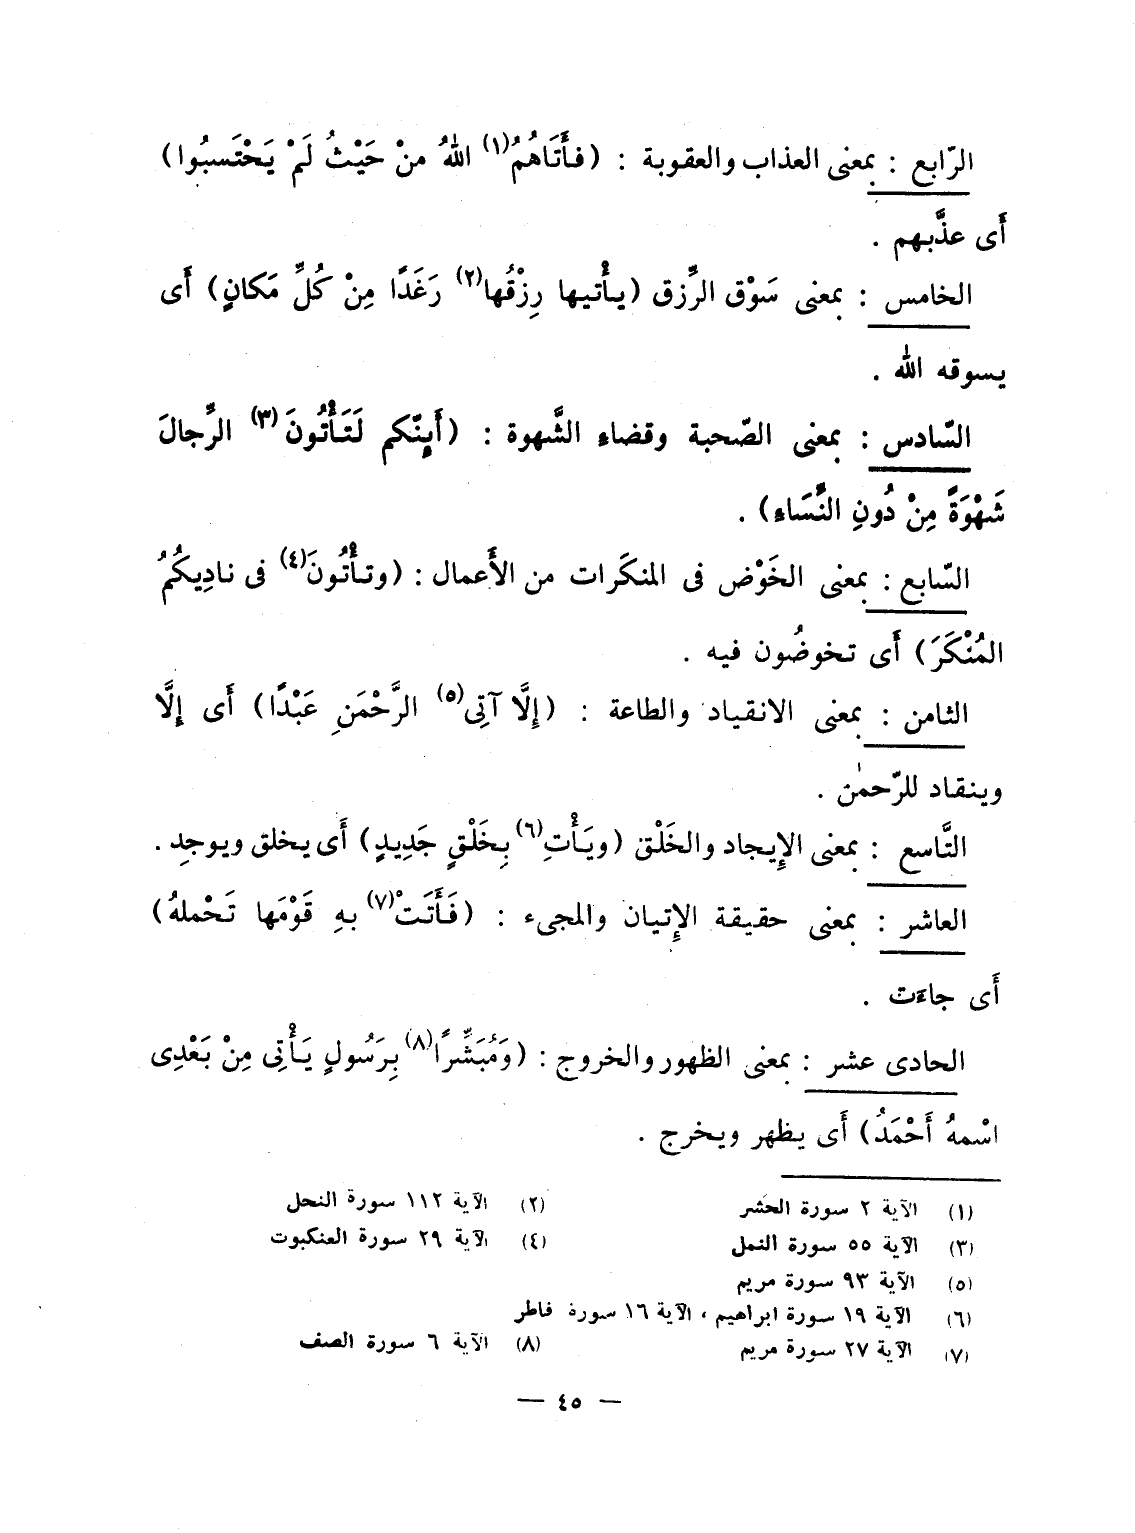 الرّابع : بمعنى العذاب والعقوبة : (فأَتَاهُمُ(١) اللهُ منْ حَيْثُ لَمْ يَحْتَسبُوا)
أَى عذَّبهم .
الخامس : بمعنى سَوْق الرِّزق (يأْتيها رِزْقُها(٢) رَغَدًا مِنْ كُلِّ مَكانٍ) أَى
يسوقه الله .
السّادس : بمعنى الصّحبة وقضاءِ الشَّهوة : (أَينّكم لَتَأْتُونَ(٣) الرِّجالَ
شَهْوَةً مِنْ دُونِ النِّسَاءِ) .
السّابع : بمعنى الخَوْض فى المنكَرات من الأَعمال : (وتأْتُونَ(٤) فى نادِيكُمُ
المُنْكَرَ) أَى تخوضُون فيه .
الثامن : بمعنى الانقياد والطاعة : (إِلَّا آتِى(٥) الرَّحْمَنِ عَبْدًا) أَى إِلَّا
وينقاد للرّحمٰن .
التَّاسع : بمعنى الإِيجاد والخَلْق (ويَأْتِ(٦) بِخَلْقٍ جَدِيدٍ) أَى يخلق ويوجدِ .
العاشر : بمعنى حقيقة الإِتيان والمجىء : (فَأَتَتْ(٧) بهِ قَوْمَها تَحْملهُ)
أَى جاءَت .
الحادى عشر : بمعنى الظهور والخروج : (وَمُبَشِّرًا(٨) بِرَسُولٍ يَأْتِى مِنْ بَعْدِى
اسْمهُ أَحْمَدُ) أَى يظهر ويخرج .
(١) الآية ٢ سورة الحشر (٢) الآية ١١٢ سورة النحل
(٣) الآية ٥٥ سورة النمل (٤) الآية ٢٩ سورة العنكبوت
(٥) الآية ٩٣ سورة مريم
(٦) الآية ١٩ سورة ابراهيم ، الآية ١٦ سورة فاطر
(٧) الآية ٢٧ سورة مريم (٨) الآية ٦ سورة الصف
— ٤٥ —